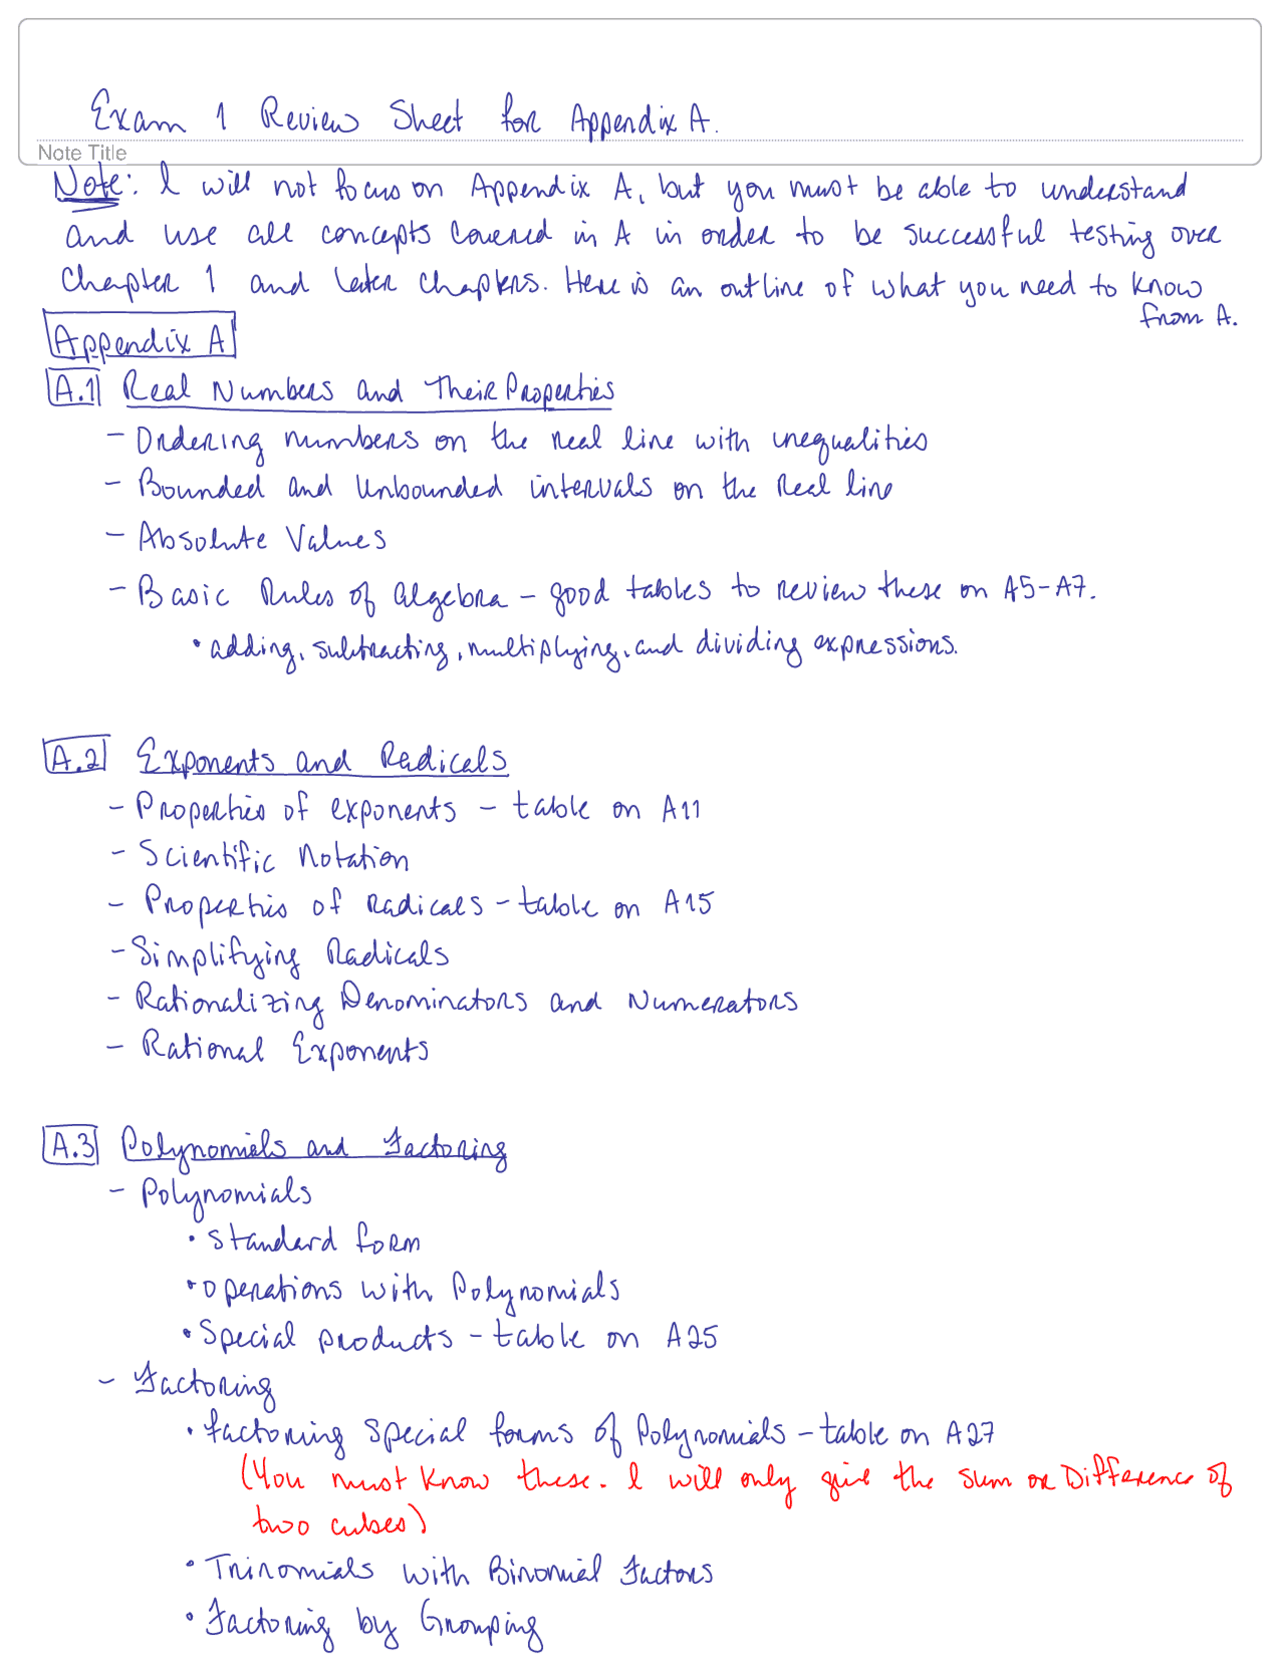 Exam 1 Review Sheet for Appendix A.
Note Title
Note: I will not focus on Appendix A, but you must be able to understand
and use all concepts covered in A in order to be successful testing over
Chapter 1 and later chapters. Here is an outline of what you need to know
from A.
Appendix A
A.1 Real Numbers and Their Properties
- Ordering numbers on the real line with inequalities
- Bounded and Unbounded intervals on the Real line
- Absolute Values
- Basic Rules of algebra - good tables to review these on A5-A7.
• adding, subtracting, multiplying, and dividing expressions.
A.2 Exponents and Radicals
- Properties of exponents - table on A11
- Scientific Notation
- Properties of radicals - table on A15
- Simplifying Radicals
- Rationalizing Denominators and Numerators
- Rational Exponents
A.3 Polynomials and Factoring
- Polynomials
• Standard form
• operations with Polynomials
• Special products - table on A25
- Factoring
• factoring special forms of Polynomials - table on A27
(You must know these. I will only give the sum or Difference of
two cubes)
• Trinomials with Binomial Factors
• Factoring by Grouping